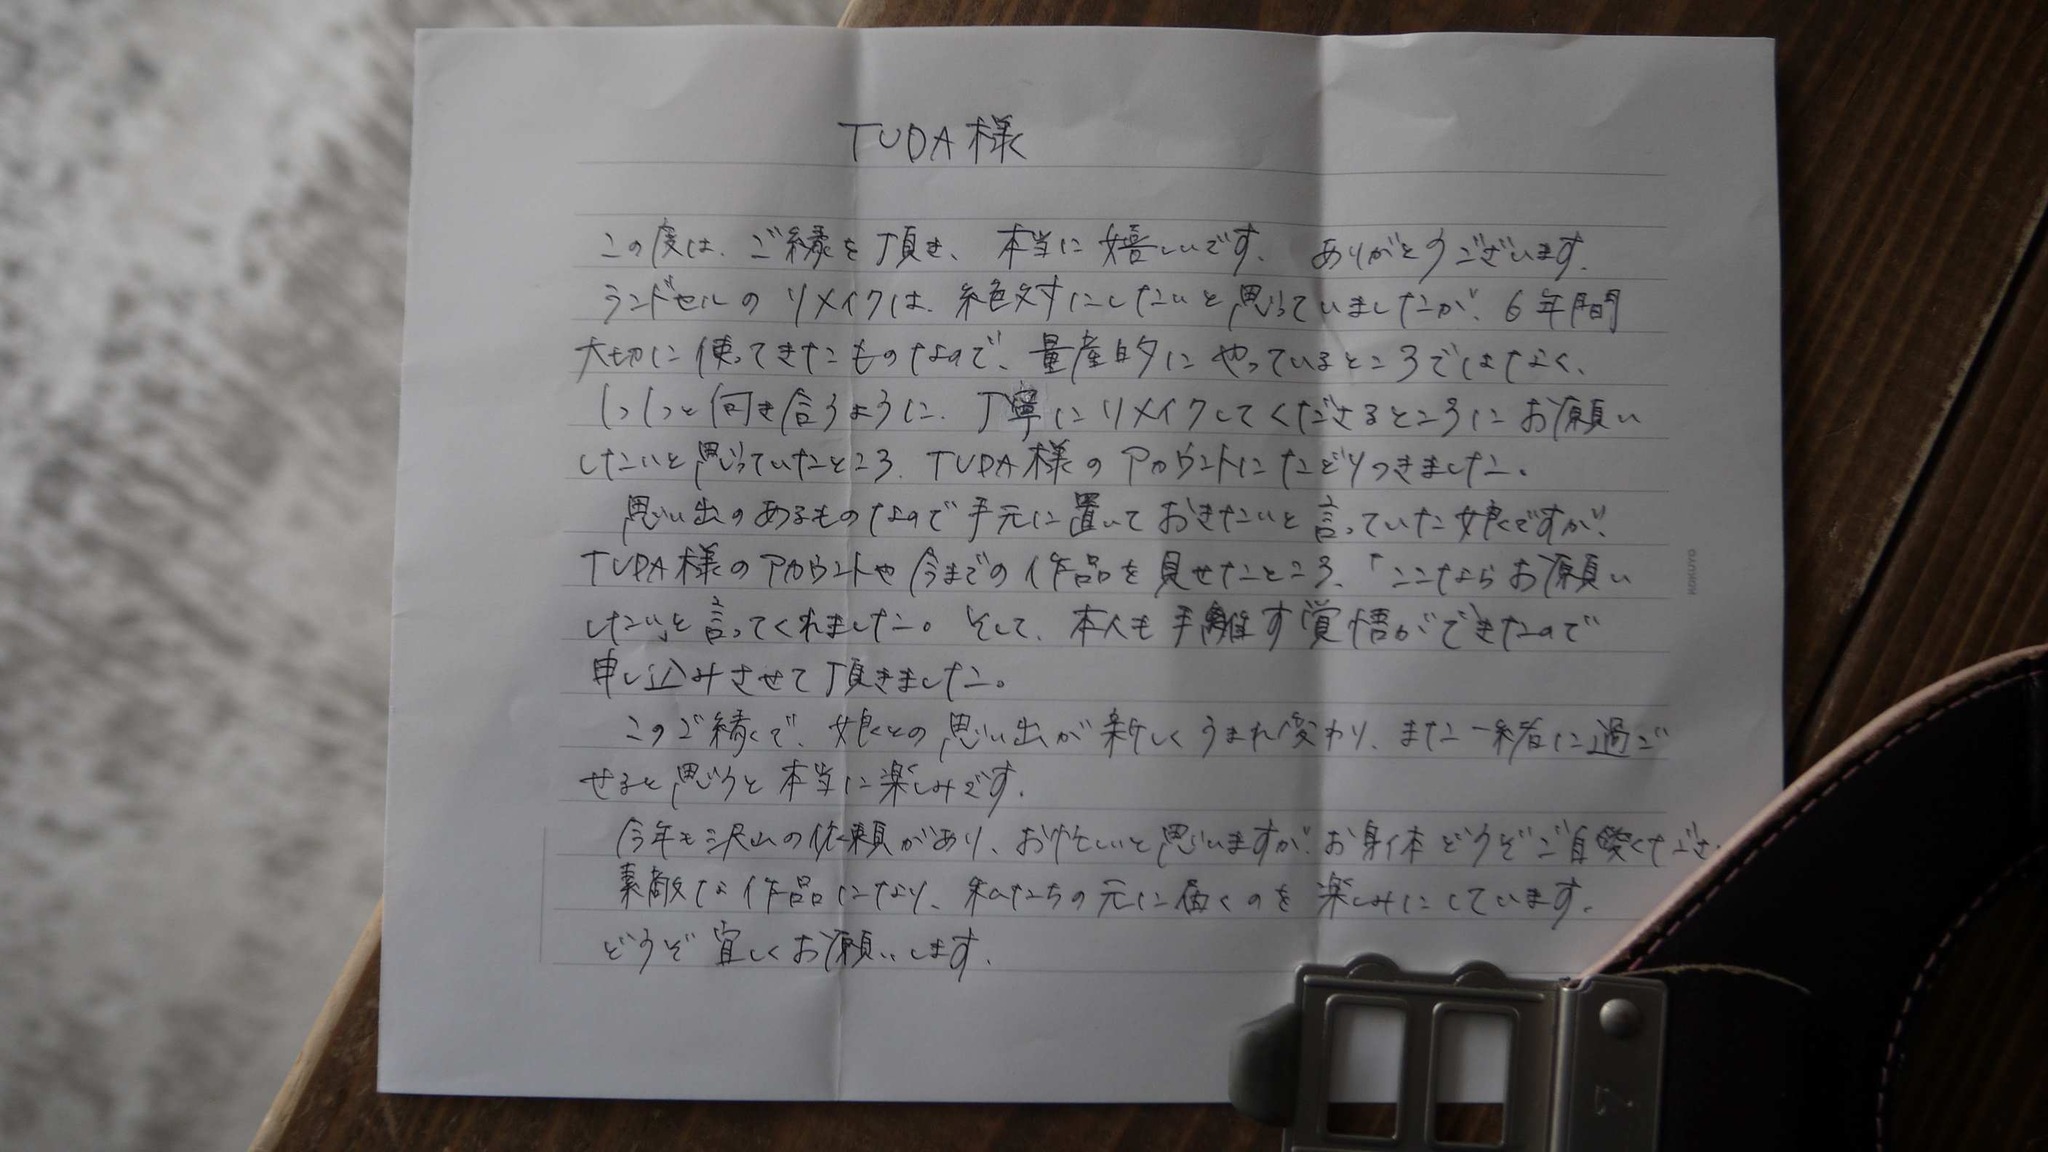 TUDA様
この度は、ご縁を頂き、本当に嬉しいです。ありがとうございます。
ランドセルのリメイクは、絶対にしたいと思っていましたが、6年間
大切に使ってきたものなので、量産的にやっているところではなく、
しっしっと向き合うように、丁寧にリメイクしてくださるところにお願い
したいと思っていたところ、TUDA様のアカウントにたどりつきました。
思い出のあるものなので手元に置いておきたいと言っていた娘ですが、
TUDA様のアカウントや今までの作品を見せたところ、「ここならお願い
したい」と言ってくれました。そして、本人も手離す覚悟ができたので
申し込みさせて頂きました。
このご縁で、娘との思い出が新しくうまれ変わり、また一緒に過ご
せると思うと本当に楽しみです。
今年も沢山の依頼があり、お忙しいと思いますが、お身体どうぞご自愛くださ
素敵な作品になり、私たちの元に届くのを楽しみにしています。
どうぞ宜しくお願いします。
KOKUYO